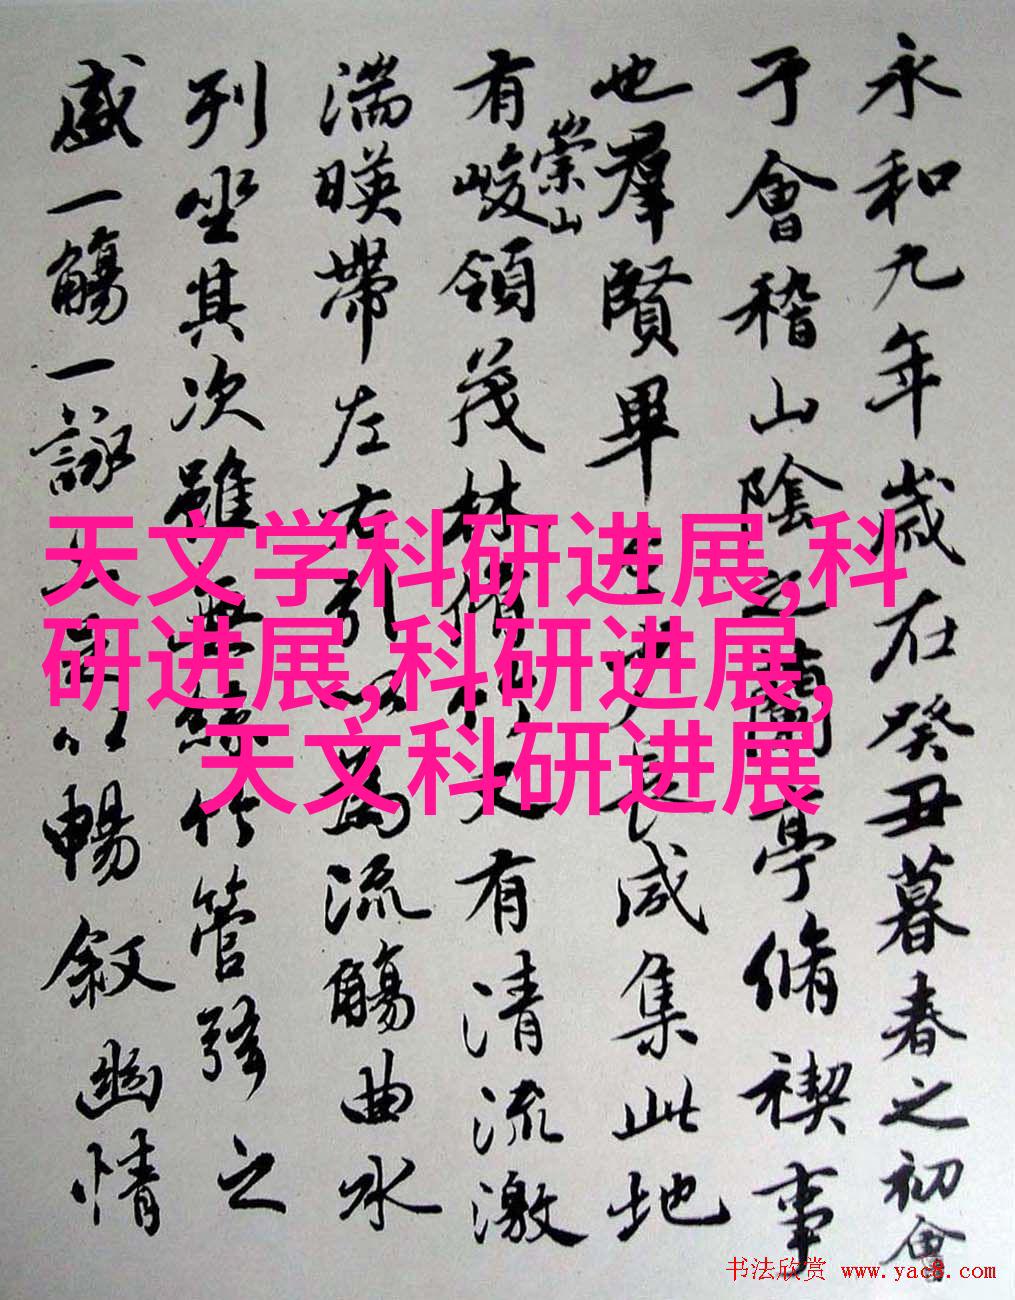 永和九年歲在癸丑暮春之初會
于會稽山陰之蘭亭脩禊事
也羣賢畢至少長咸集此地
有崇山峻領茂林脩竹又有清流激
湍暎帶左右引以為流觴曲水
列坐其次雖無絲竹管弦之
盛一觴一詠亦足以暢敘幽情
天文学科研进展,科
研进展,科研进展,
天文科研进展
书法欣赏 www.yac8.com